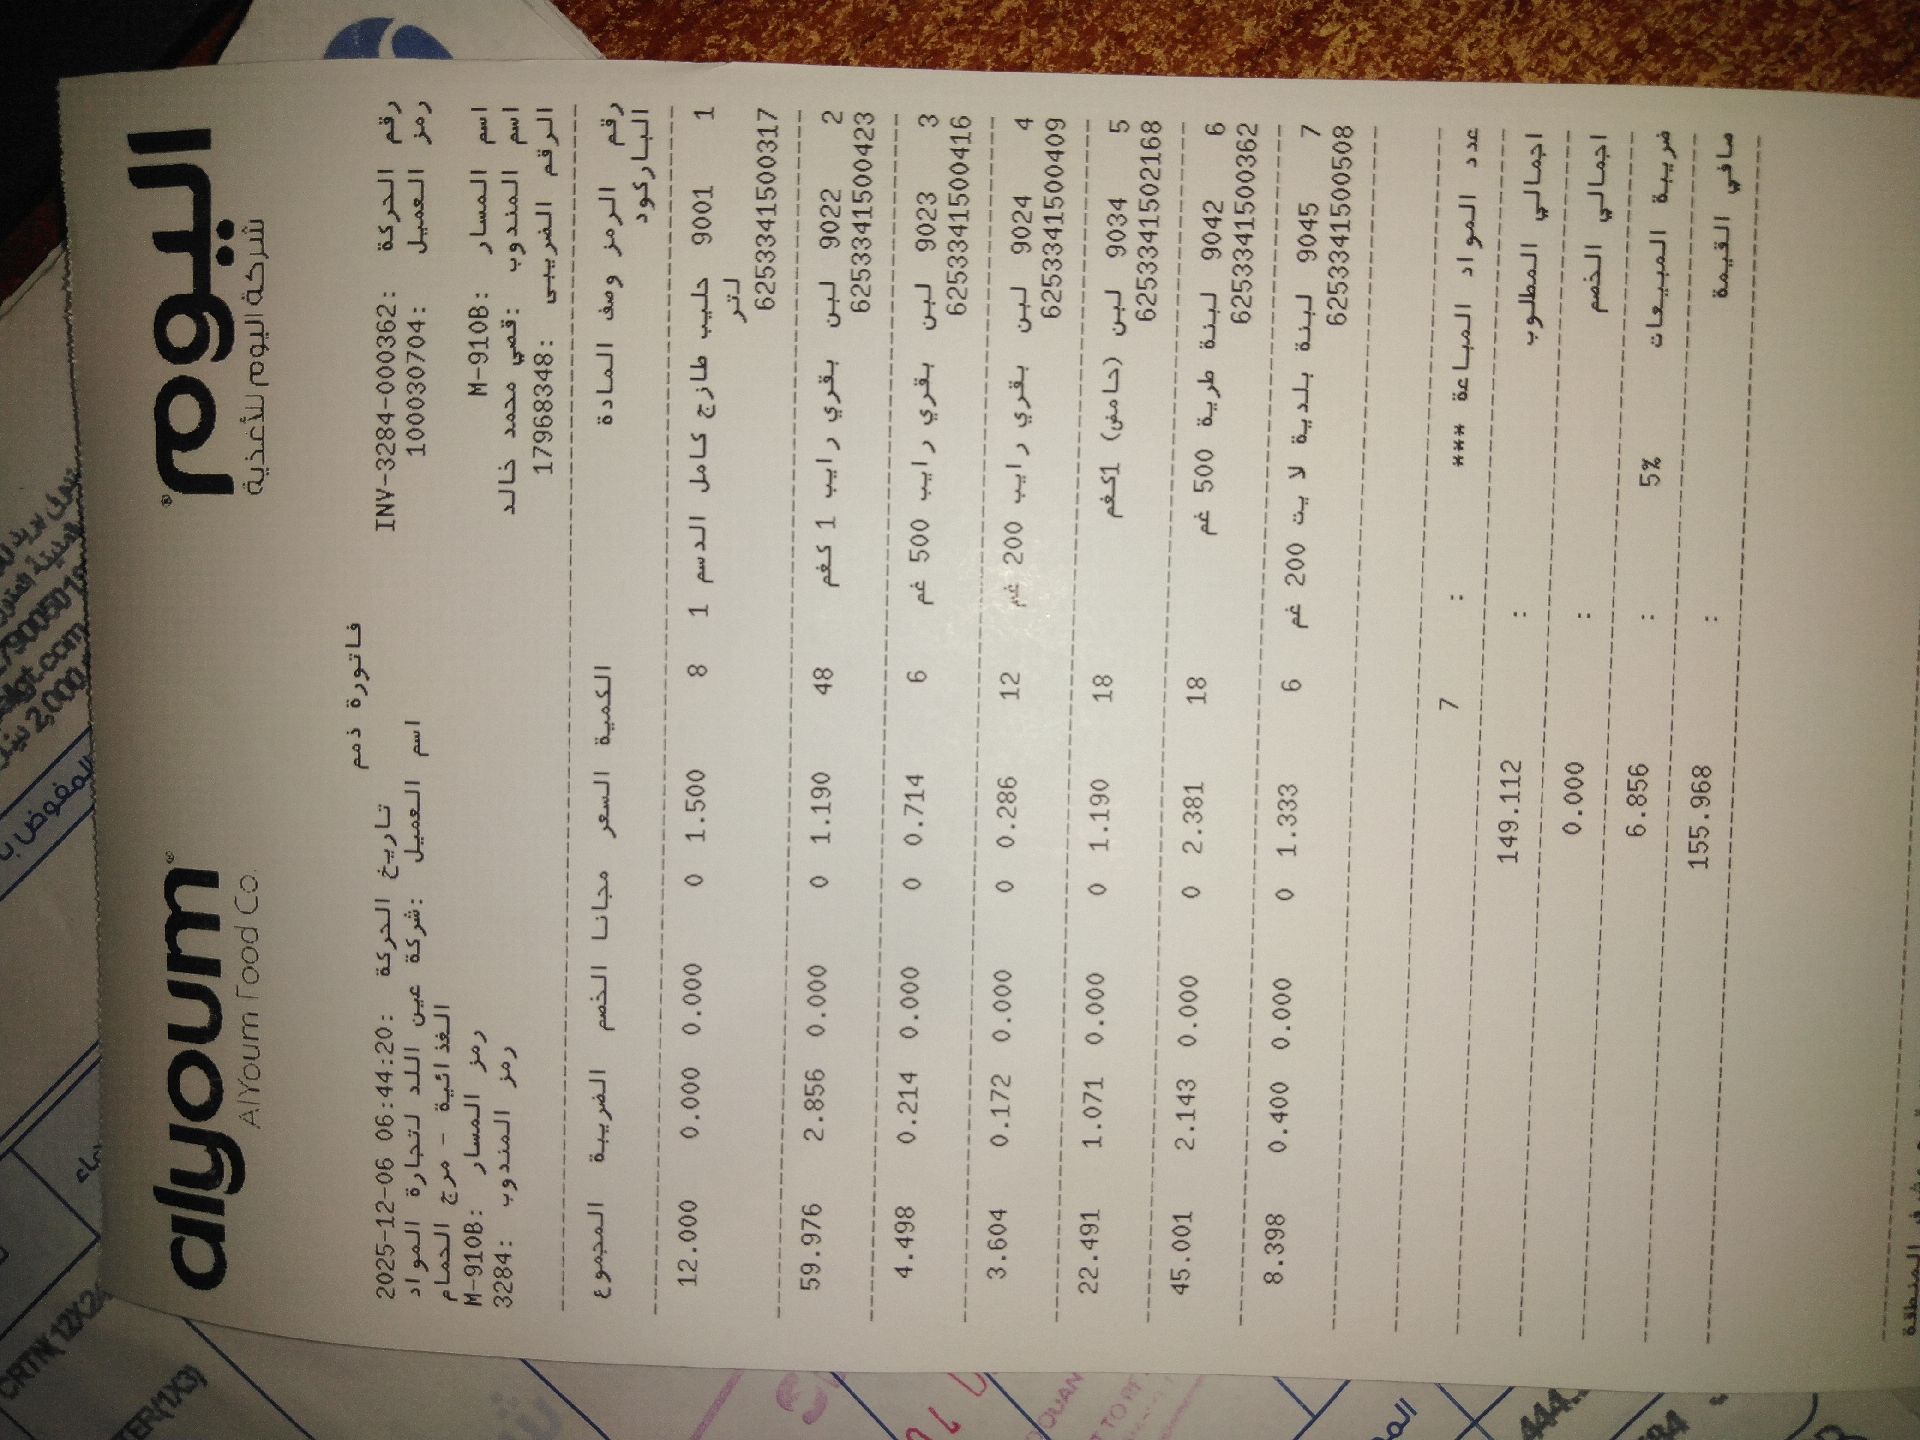 alyoum® اليوم®
AlYoum Food Co. شركة اليوم للأغذية
فاتورة ذمم
رقم الحركة :INV-3284-000362 تاريخ الحركة :2025-12-06 06:44:20
رمز العميل :100030704 اسم العميل :شركة عين اللد لتجارة المواد
الغذائية - مرج الحمام
اسم المسار :M-910B رمز المسار :M-910B
اسم المندوب :قصي محمد خالد رمز المندوب :3284
الرقم الضريبي :17968348
رقم الرمز وصف المادة الكمية السعر مجانا الخصم الضريبة المجموع
الباركود
1 9001 حليب طازج كامل الدسم 1 8 1.500 0 0.000 0.000 12.000
لتر
6253341500317
2 9022 لبن بقري رايب 1 كغم 48 1.190 0 0.000 2.856 59.976
6253341500423
3 9023 لبن بقري رايب 500 غم 6 0.714 0 0.000 0.214 4.498
6253341500416
4 9024 لبن بقري رايب 200 غم 12 0.286 0 0.000 0.172 3.604
6253341500409
5 9034 لبن (حامض) 1كغم 18 1.190 0 0.000 1.071 22.491
6253341502168
6 9042 لبنة طرية 500 غم 18 2.381 0 0.000 2.143 45.001
6253341500362
7 9045 لبنة بلدية لايت 200 غم 6 1.333 0 0.000 0.400 8.398
6253341500508
عدد المواد المباعة *** : 7
اجمالي المطلوب : 149.112
اجمالي الخصم : 0.000
ضريبة المبيعات 5% : 6.856
صافي القيمة : 155.968